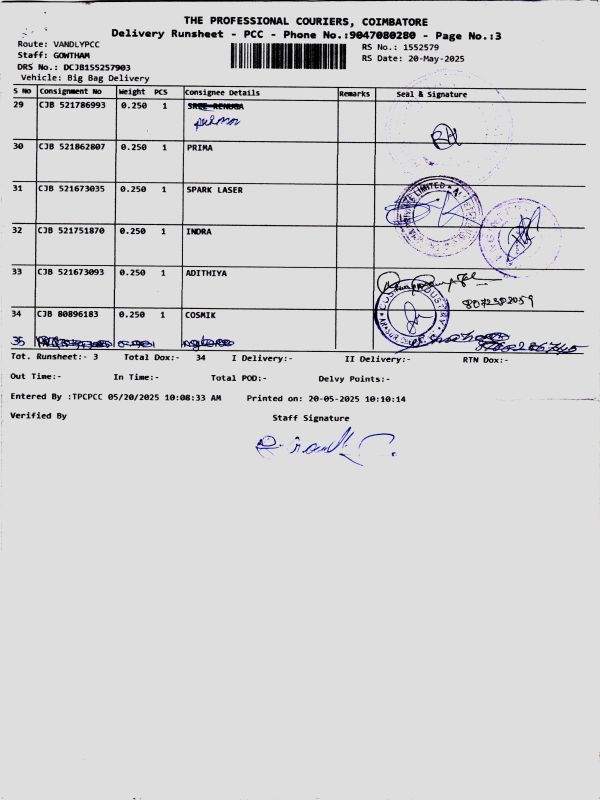 THE PROFESSIONAL COURIERS, COIMBATORE
Delivery Runsheet - PCC - Phone No.:9047080280 - Page No.:3
Route: VANDLYPCC
RS No.: 1552579
Staff: GOWTHAM
RS Date: 20-May-2025
DRS No.: DCJB155257903
Vehicle: Big Bag Delivery
S No Consignment No Weight PCS Consignee Details Remarks Seal & Signature
29 CJB 521786993 0.250 1 SREE RENUGA
30 CJB 521862807 0.250 1 PRIMA
31 CJB 521673035 0.250 1 SPARK LASER
32 CJB 521751870 0.250 1 INDRA
33 CJB 521673093 0.250 1 ADITHIYA
34 CJB 80896183 0.250 1 COSMIK
35
Tot. Runsheet:- 3 Total Dox:- 34 I Delivery:- II Delivery:- RTN Dox:-
Out Time:- In Time:- Total POD:- Delvy Points:-
Entered By :TPCPCC 05/20/2025 10:08:33 AM Printed on: 20-05-2025 10:10:14
Verified By Staff Signature